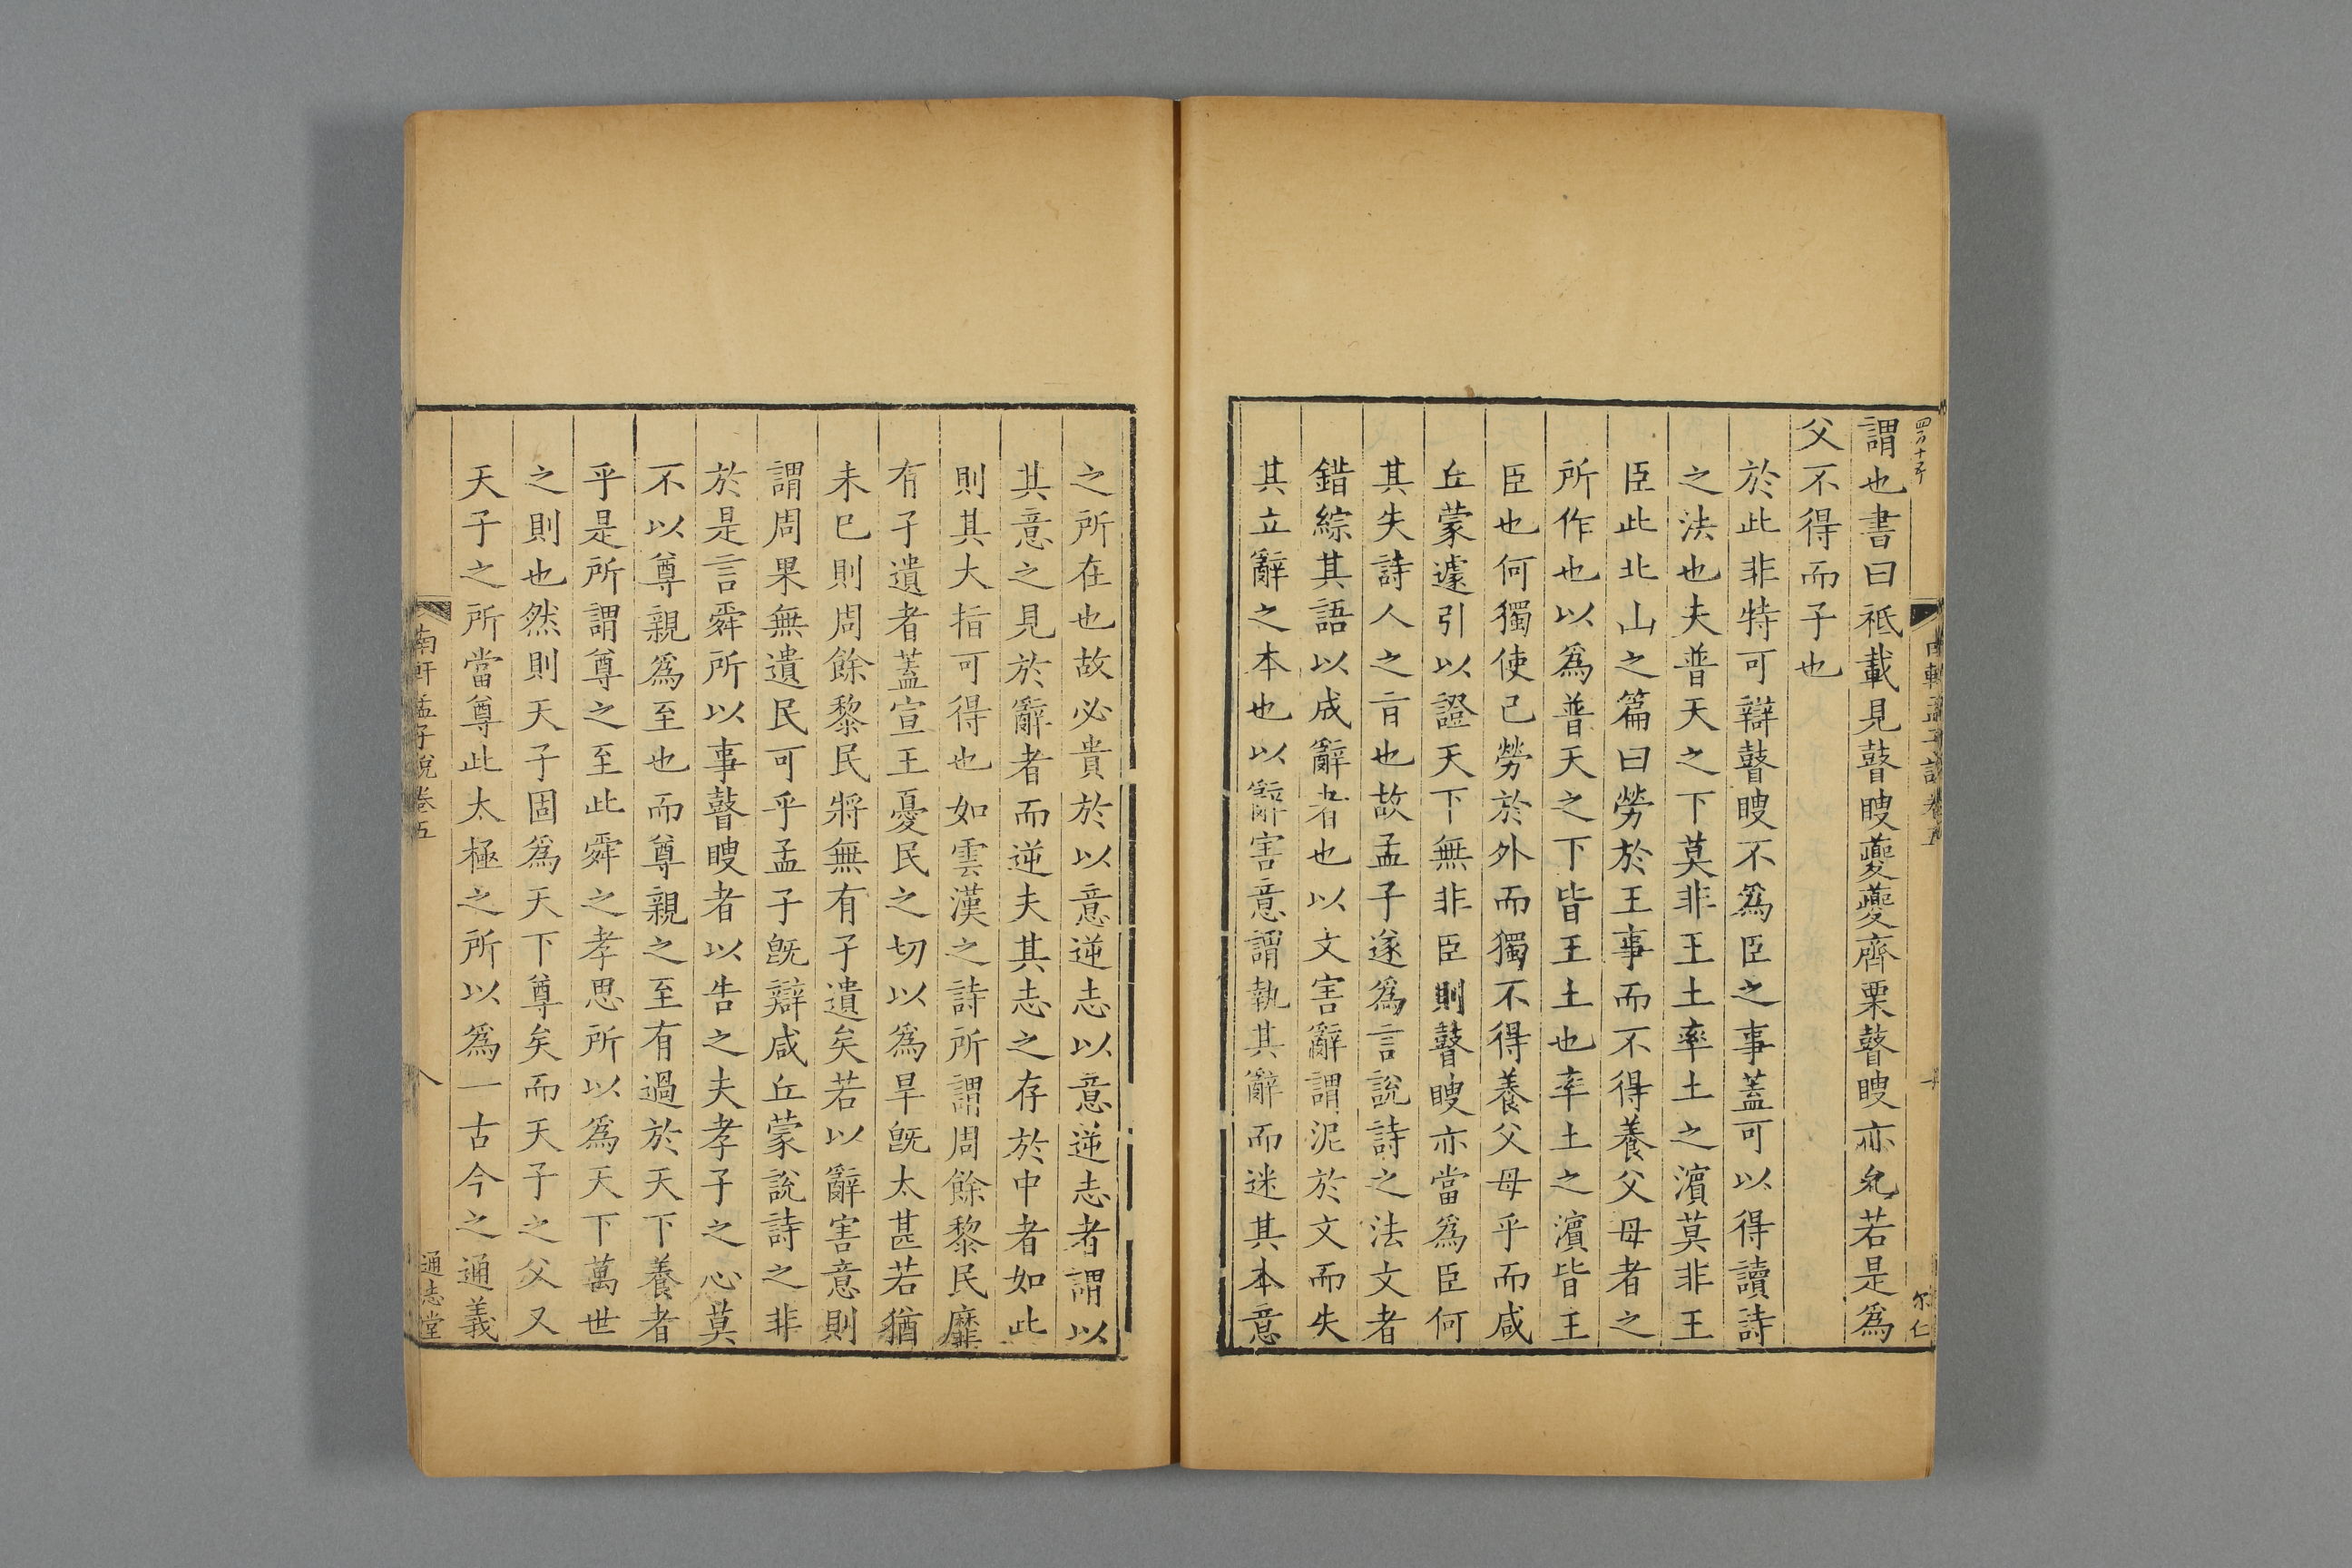 謂也書曰祗載見瞽瞍夔夔齊栗瞽瞍亦允若是爲
父不得而子也
於此非特可辯瞽瞍不爲臣之事蓋可以得讀詩
之法也夫普天之下莫非王土率土之濱莫非王
臣此北山之篇曰勞於王事而不得養父母者之
所作也以爲普天之下皆王土也率土之濱皆王
臣也何獨使己勞於外而獨不得養父母乎而咸
丘蒙遽引以證天下無非臣則瞽瞍亦當爲臣何
其失詩人之旨也故孟子遂爲言說詩之法文者
錯綜其語以成辭者也以文害辭謂泥於文而失
其立辭之本也以辭害意謂執其辭而迷其本意
之所在也故必貴於以意逆志以意逆志者謂以
其意之見於辭者而逆夫其志之存於中者如此
則其大指可得也如雲漢之詩所謂周餘黎民靡
有孑遺者蓋宣王憂民之切以爲旱旣太甚若猶
未已則周餘黎民將無有孑遺矣若以辭害意則
謂周果無遺民可乎孟子旣辯咸丘蒙說詩之非
於是言舜所以事瞽瞍者以告之夫孝子之心莫
不以尊親爲至也而尊親之至有過於天下養者
乎是所謂尊之至此舜之孝思所以爲天下萬世
之則也然則天子固爲天下尊矣而天子之父又
天子之所當尊此太極之所以爲一古今之通義
南軒孟子說卷五
八
通志堂